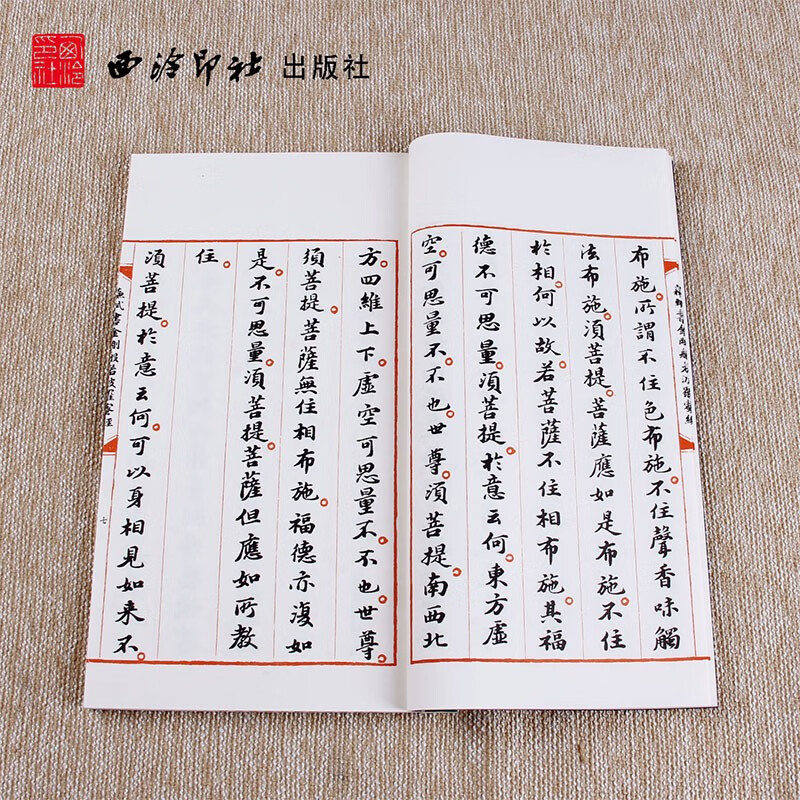 西泠印社 出版社
布施所謂不住色布施不住聲香味觸
法布施須菩提菩薩應如是布施不住
於相何以故若菩薩不住相布施其福
德不可思量須菩提於意云何東方虛
空可思量不不也世尊須菩提南西北
方四維上下虛空可思量不不也世尊
須菩提菩薩無住相布施福德亦復如
是不可思量須菩提菩薩但應如所教
住
須菩提於意云何可以身相見如来不
七